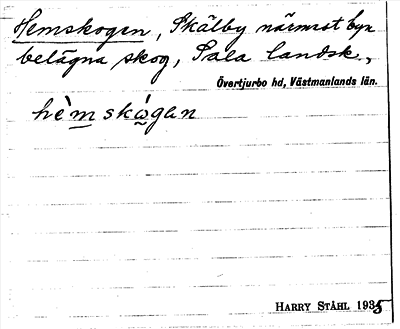 Hemskogen, Skälby närmast byn
belägna skog, Sala landsk.,
Övertjurbo hd, Västmanlands län.
hè̀m skó̀gan
HARRY STÅHL 1935